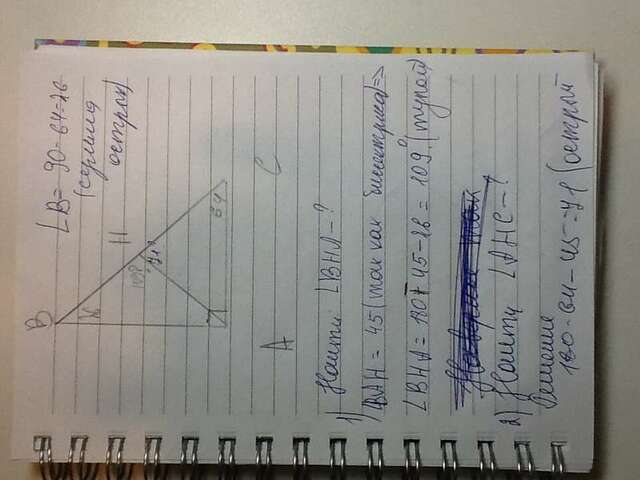 B
∠B = 90-64=26
(
острый
109°
71°
H
64
A
C
1) Найти: ∠BHA-?
BAH = 45 (так как биссектриса) =>
∠BHA = 180-45-26 = 109° (тупой)
2) Найти ∠AHC-?
Решение
180-64-45=71 (острый-